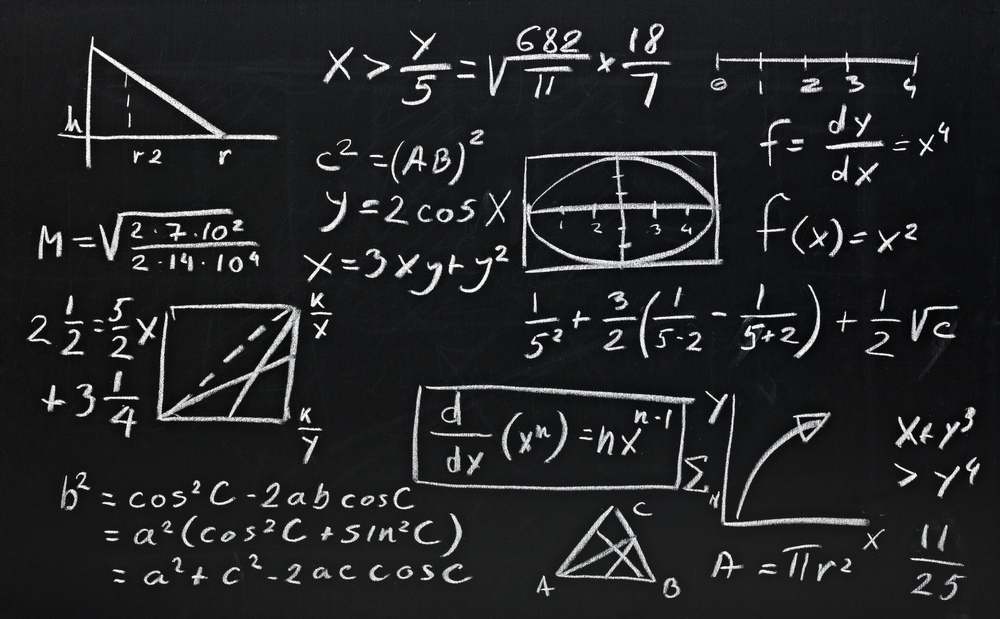 h
r2 r
x > y/5 = √(682/11) × 18/7
0 1 2 3 4
f = dy/dx = x⁴
c² = (AB)²
y = 2 cos x
x = 3xy + y²
1 2 3 4
f(x) = x²
M = √(2·7·10²/2·14·10⁴)
2 1/2 = 5/2 x
+ 3 1/4
K/x
K/y
1/5² + 3/2 (1/5-2 - 1/5+2) + 1/2 √c
d/dx (xⁿ) = nxⁿ⁻¹
y
x
x + y³
> y⁴
b² = cos²C - 2ab cosC
= a²(cos²C + sin²C)
= a² + c² - 2ac cosc
A B C
A = πr²
11/25